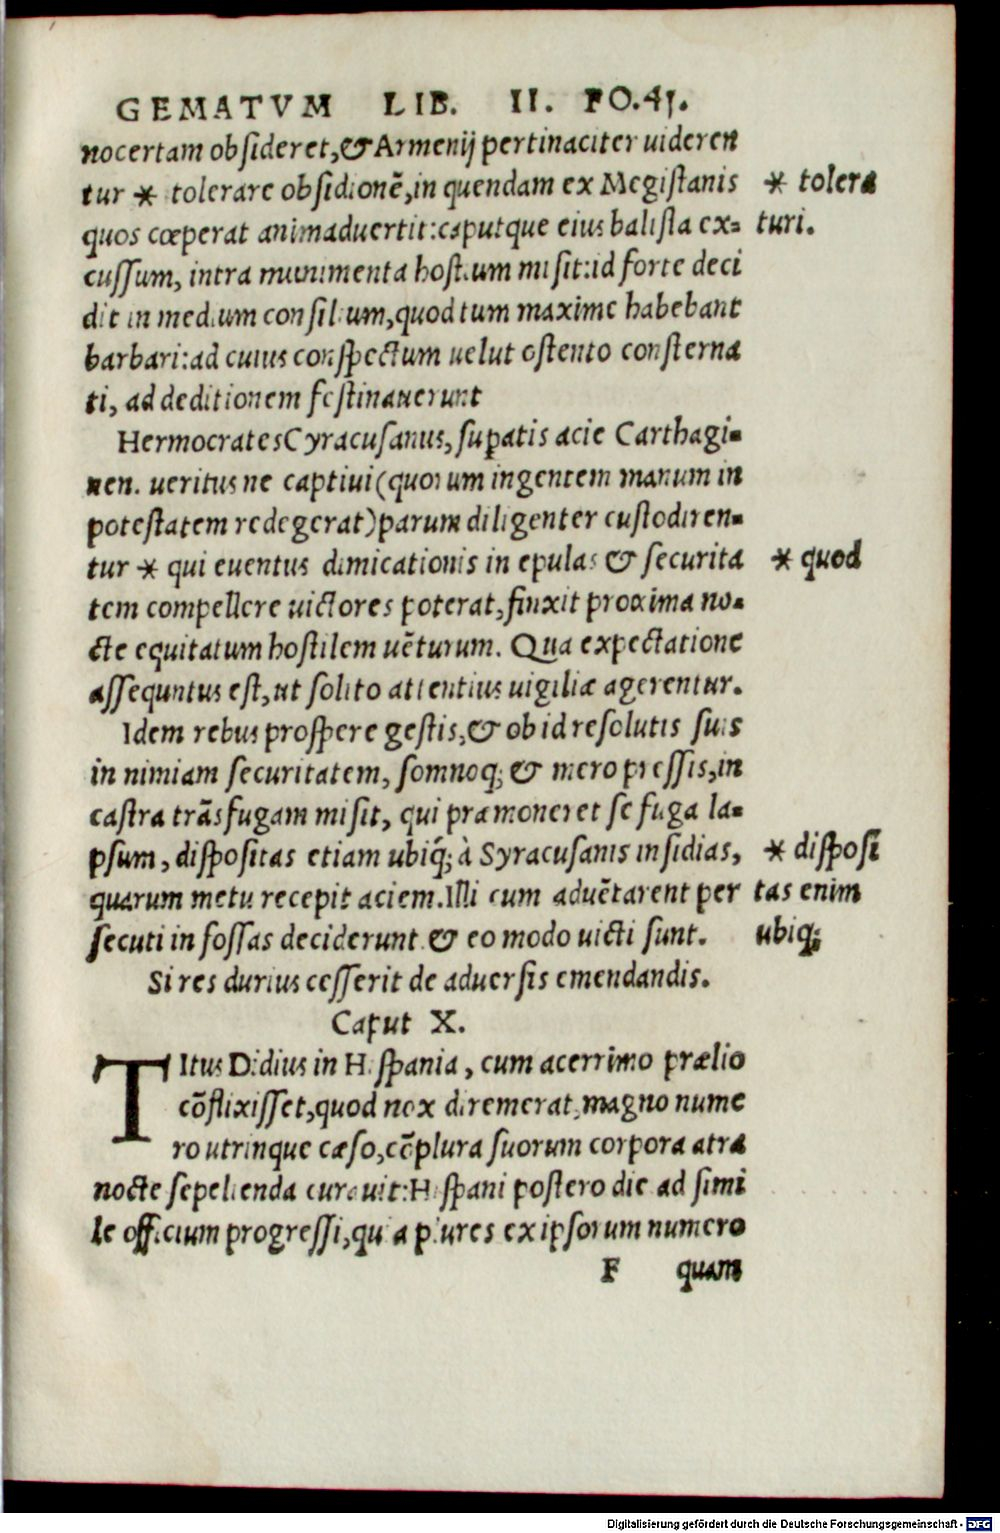 GEMATVM LIB. II. FO.41.
nocertam obsideret,& Armenij pertinaciter uideren
tur * tolerare obsidionē,in quendam ex Megistanis * tolera
quos cœperat animaduertit:caputque eius balista ex= turi.
cussum, intra munimenta hostium misit:id forte deci
dit in medium consilium,quod tum maxime habebant
barbari:ad cuius conspectum uelut ostento consterna
ti, ad deditionem festinauerunt
Hermocrates Cyracusanus, supatis acie Carthagi=
nen. ueritus ne captiui (quorum ingentem manum in
potestatem redegerat) parum diligenter custodiren=
tur * qui euentus dimicationis in epulas & securita * quod
tem compellere uictores poterat, finxit proxima no=
cte equitatum hostilem uēturum. Qua expectatione
assequntus est, ut solito attentius uigiliæ agerentur.
Idem rebus prospere gestis,& ob id resolutis suis
in nimiam securitatem, somnoq; & mero pressis,in
castra trāsfugam misit, qui præmoneret se fuga la=
psum, dispositas etiam ubiq; à Syracusanis insidias, * disposi
quarum metu recepit aciem. Illi cum aduētarent per tas enim
secuti in fossas deciderunt & eo modo uicti sunt. ubiq;
Si res durius cesserit de aduersis emendandis.
Caput X.
TItus Didius in Hispania, cum acerrimo prælio
cōflixisset,quod nox diremerat,magno nume
ro utrinque cæso,cōplura suorum corpora atra
nocte sepelienda curauit:Hispani postero die ad simi
le officium progressi,quia plures ex ipsorum numero
F quam
Digitalisierung gefördert durch die Deutsche Forschungsgemeinschaft - DFG